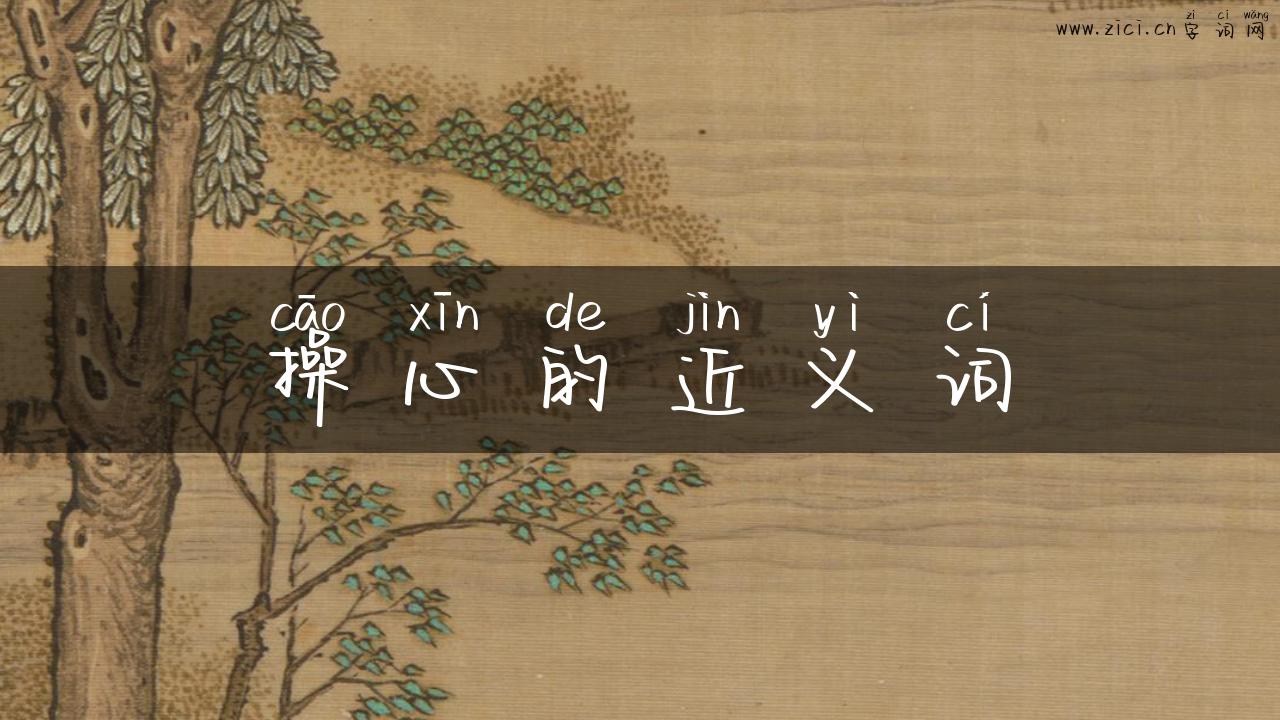 zì cí wǎng
www.zici.cn字词网
cāo xīn de jìn yì cí
操心的近义词